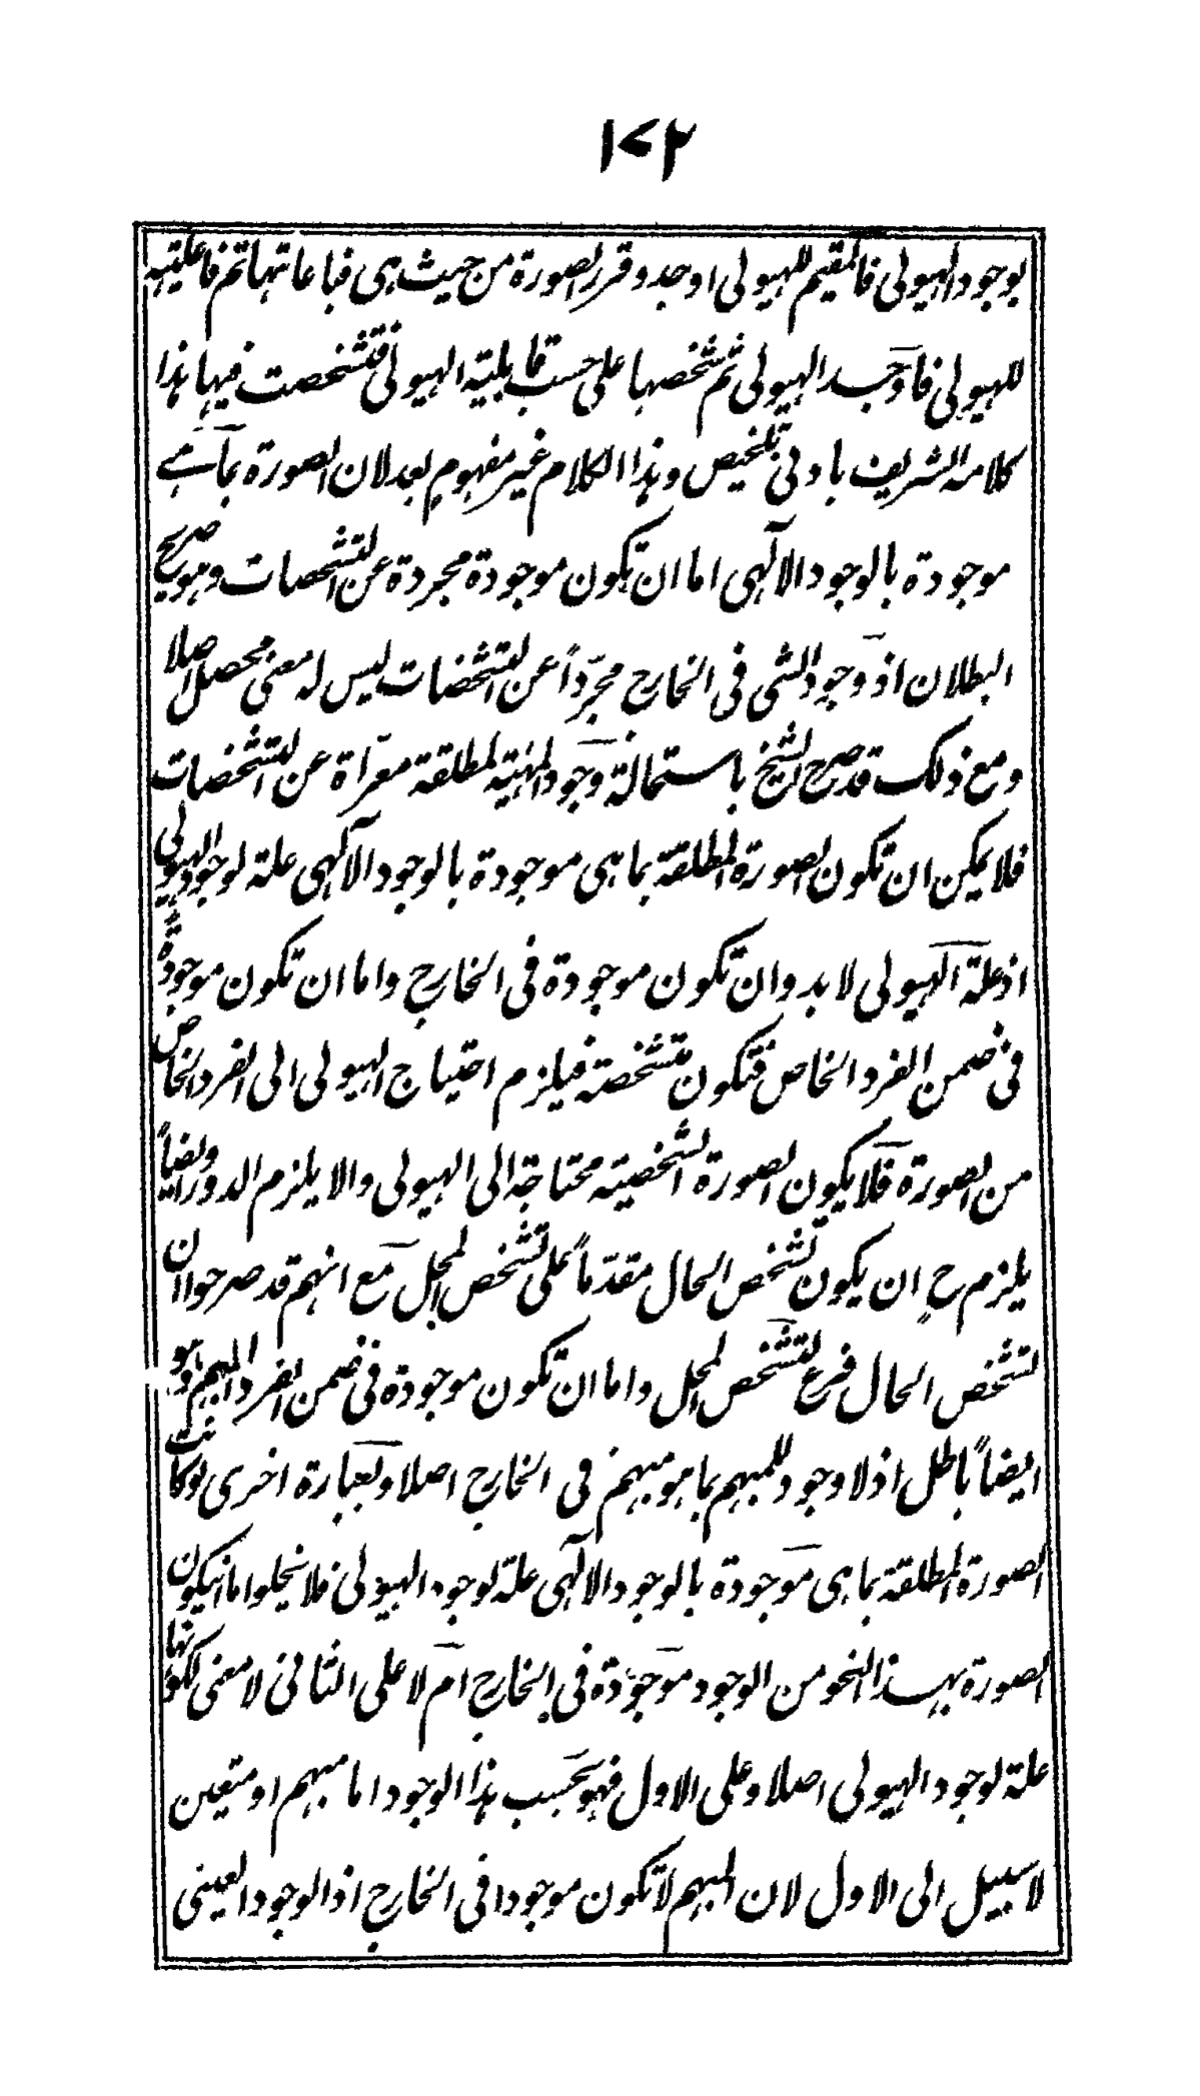 ١٧٢
بوجود الهيولى فالمقيم للهيولى اوجد وقرر الصورة من حيث هى فباعانتها تم فاعليته
للهيولى فاوجد الهيولى ثم شخصها على حسب قابلية الهيولى فتشخصت فيها هذا
كلامه الشريف بادنى تلخيص وهذا الكلام غير مفهوم بعد لان الصورة بما هے
موجودة بالوجود الآلهى اما ان تكون موجودة مجردة عن التشخصات وهو صريح
البطلان اذ وجود الشى فى الخارج مجرّداً عن التشخصات ليس له معنى محصل اصلا
ومع ذلك قد صرح الشيخ باستحالة وجود المهية المطلقة معرّاة عن التشخصات
فلا يمكن ان تكون الصورة المطلقة بما هى موجودة بالوجود الآلهى علة لوجود الهيولى
اذ علة الهيولى لا بد وان تكون موجودة فى الخارج واما ان تكون موجودةً
فى ضمن الفرد الخاص فتكون متشخصة فيلزم احتياج الهيولى الى الفرد الخاص
من الصورة فلا يكون الصورة الشخصية محتاجة الى الهيولى والا يلزم الدور وايضاً
يلزم ح ان يكون تشخص الحال مقدّماً على تشخص المحل مع انهم قد صرحوا ان
تشخص الحال فرع لتشخص المحل واما ان تكون موجودة فى ضمن الفرد المبهم وهو
ايضاً باطل اذ لا وجود للمبهم بما هو مبهم فى الخارج اصلا وبعبارة اخرى لو كانت
الصورة المطلقة بما هى موجودة بالوجود الآلهى علة لوجود الهيولى فلا يخلوا ما انيكون
الصورة بهذا النحو من الوجود موجودة فى الخارج ام لا على الثانى لا معنى لكونها
علة لوجود الهيولى اصلا وعلى الاول فهو بحسب هذا الوجود اما مبهم او متعين
لا سبيل الى الاول لان المبهم لا تكون موجودا فى الخارج اذ الوجود العينى